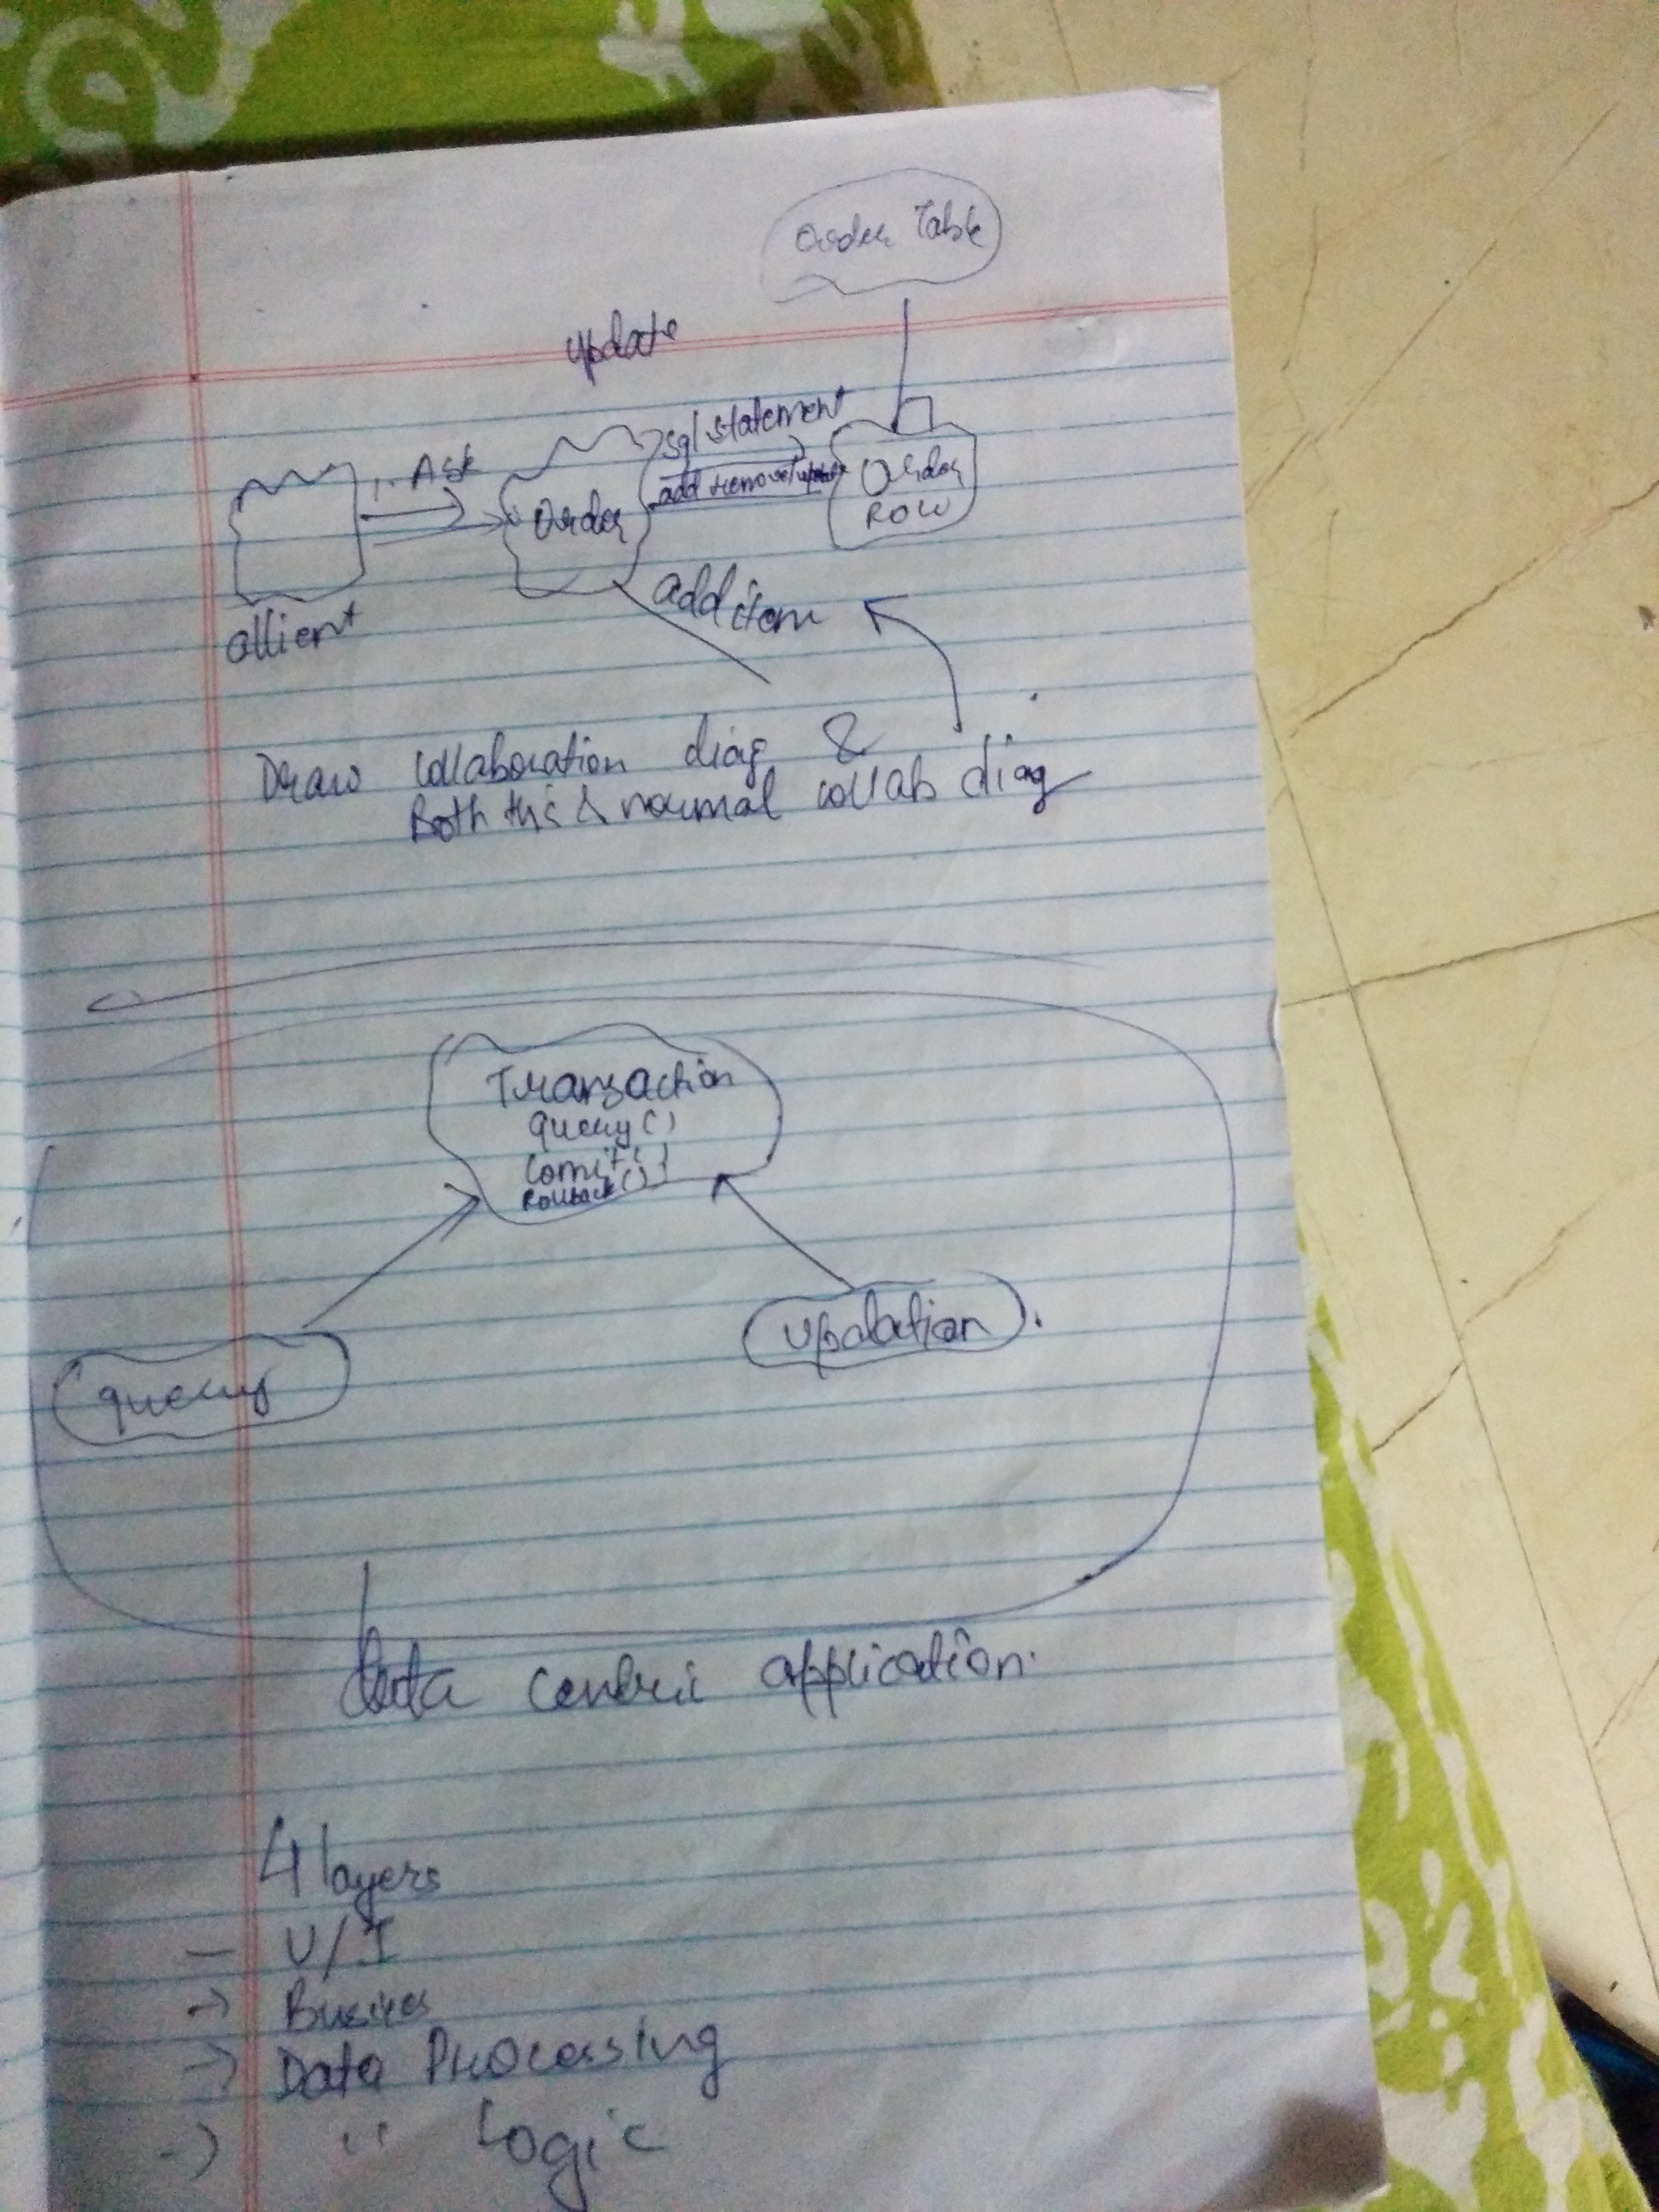 Order Table
update
1. Ask
sql statement
add remove/update
Order
Order
ROW
add item
cllient
Draw collaboration diag &
Both this & normal collab diag
Transaction
query()
comit()
Rollback()
query
updation
data centric application.
4 layers
— U/I
→ Busines
→ Data Processing
→ " Logic